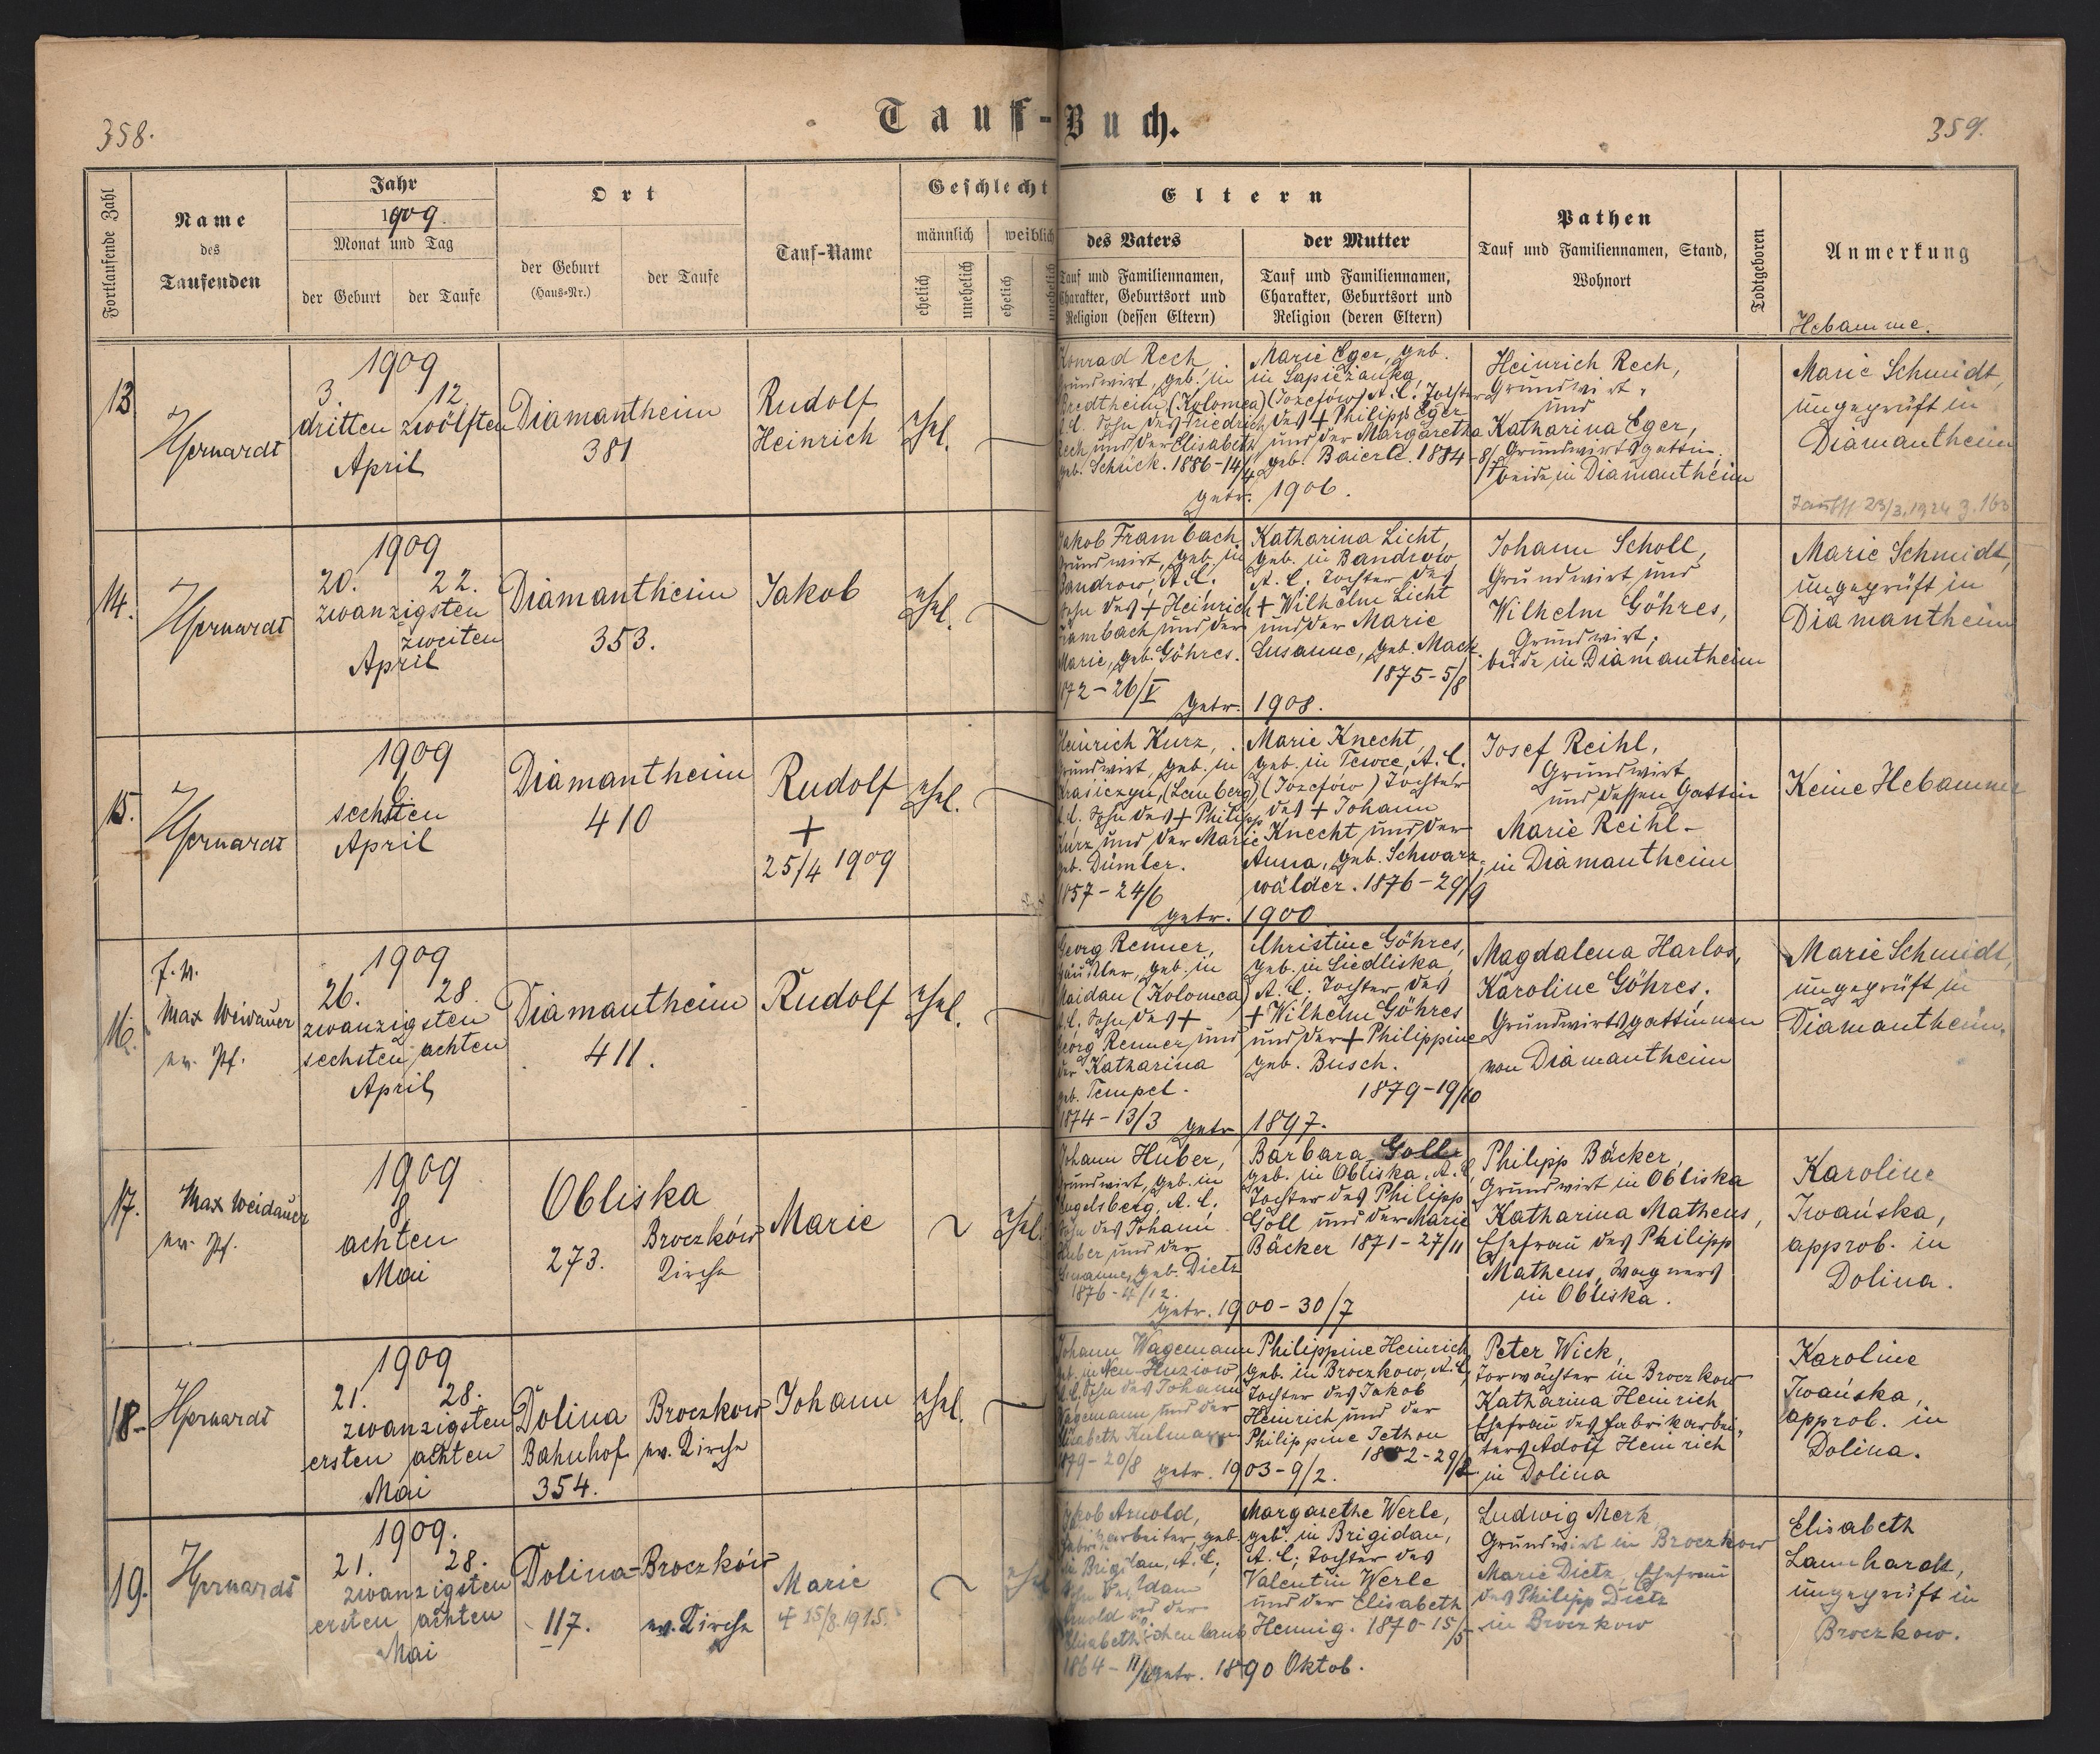 358.
Tauf-Buch.
359.
Fortlaufende Zahl
Name
des
Taufenden
Jahr
1909.
Monat und Tag
der Geburt
der Taufe
Ort
der Geburt
(Haus-Nr.)
der Taufe
Tauf-Name
Geschlecht
männlich
weiblich
ehelich
unehelich
ehelich
unehelich
Eltern
des Vaters
Tauf und Familiennamen,
Charakter, Geburtsort und
Religion (dessen Eltern)
der Mutter
Tauf und Familiennamen,
Charakter, Geburtsort und
Religion (deren Eltern)
Pathen
Tauf und Familiennamen, Stand,
Wohnort
Todtgeboren
Anmerkung
Hebamme.
13
1909
3. 12.
dritten zwölften
April
Diamantheim
381
Rudolf
Heinrich
ehel.
Konrad Rech
Grundwirt, geb. in
Bredtheim (Kolomea)
A.C. Sohn des Friedrich
Rech und der Elisabeth
geb. Schück. 1886-14/4
Marie Eger, geb.
in Sapieżanka,
(Józefów) A.C. Tochter
des + Philipp Eger
und der Margaretha
geb. Baierle. 1884-8/
getr. 1906.
Heinrich Rech,
Grundwirt,
und
Katharina Eger,
Grundwirtsgattin,
beide in Diamantheim
Marie Schmidt,
ungeprüft in
Diamantheim
23/3.1924 Z. 163
14.
1909
20. 22.
zwanzigsten
zweiten
April
Diamantheim
353.
Jakob
ehel.
Jakob Frambach
Grundwirt, geb. in
Bandrow, A.C.
Sohn des + Heinrich
Frambach und der
Marie, geb. Göhres.
1872-26/V
Katharina Licht,
geb. in Bandrow
A.C. Tochter des
+ Wilhelm Licht
und der Marie
Susanne, geb. Mack.
1875-5/8
getr. 1908.
Johann Scholl,
Grundwirt und
Wilhelm Göhres,
Grundwirt,
beide in Diamantheim
Marie Schmidt,
ungeprüft in
Diamantheim
15.
1909
6.
sechsten
April
Diamantheim
410
Rudolf
+
25/4 1909
ehel.
Heinrich Kurz,
Grundwirt, geb. in
Krasiczyn, (Lemberg)
A.C. Sohn des + Philipp
Kurz und der Marie
geb. Dümler.
1857-24/6
Marie Knecht,
geb. in A.C.
(Józefów) Tochter
des + Johann
Knecht und der
Anna, geb. Schwarz-
wälder. 1876-29/9
getr. 1900
Josef Reihl,
Grundwirt
und dessen Gattin
Marie Reihl-
in Diamantheim
Keine Hebamme
16.
f. n.
Max Weidauer
ev. Pf.
1909
26. 28.
zwanzigsten
sechsten achten
April
Diamantheim
411.
Rudolf
ehel.
Georg Renner,
geb. in
Maidan (Kolomea)
A.C. Sohn des +
Georg Renner und
der Katharina
geb. Tempel.
1874-13/3
Christine Göhres,
geb. in Siedliska,
A.C. Tochter des
+ Wilhelm Göhres
und der + Philippine
geb. Busch.
1879-19/10
getr. 1897.
Magdalena Harlos,
Karoline Göhres,
Grundwirtsgattinnen
von Diamantheim
Marie Schmidt,
ungeprüft in
Diamantheim.
17.
Max Weidauer
ev. Pf.
1909
8
achten
Mai
Obliska
273.
Broczków
Kirche
Marie
ehel.
Johann Huber,
Grundwirt, geb. in
Engelsberg, A.C.
Sohn des Johann
Huber und der
geb. Dietz
1876-4/12.
Barbara Goll
geb. in Obliska, A.C.
Tochter des Philipp
Göll und der Marie
Bäcker 1871-27/11
getr. 1900-30/7
Philipp Bäcker,
Grundwirt in Obliska
Katharina Matheus,
Ehefrau des Philipp
Matheus, Wagners
in Obliska.
Karoline
Iwańska,
approb. in
Dolina.
18.
1909
21. 28.
zwanzigsten
ersten achten
Mai
Dolina
Bahnhof
354.
Broczkow
ev. Kirche
Johann
ehel.
Johann Wagemann
geb. in Neu-
A.C. Sohn des Johann
Wagemann und der
Elisabeth Kulmann
1879-20/8
Philippine Heinrich,
geb. in Broczkow, A.C.
Tochter des Jakob
Heinrich und der
Philippine Jethon
getr. 1903-9/2.
Peter Wick,
Torwächter in Broczkow
Katharina Heinrich
Ehefrau des Fabrikarbei-
ters Adolf Heinrich
in Dolina
Karoline
Iwańska,
approb. in
Dolina.
19.
1909.
21. 28.
zwanzigsten
ersten achten
Mai
Dolina-
117.
Broczków
ev. Kirche
Marie
+ 15/8.1915.
ehel.
Jakob Arnold,
Fabrikarbeiter, geb.
in Brigidau, A.C.,
Sohn des Adam
Arnold und der
Elisabeth
1864-11/
Margarethe Werle,
geb. in Brigidau,
A.C., Tochter des
Valentin Werle
und der Elisabeth
Hennig. 1870-15/5
getr. 1890 Oktob.
Ludwig Merk
Grundwirt in Broczkow
Marie Dietz, Ehefrau
des Philipp Dietz
in Broczkow
Elisabeth
Launhardt,
ungeprüft in
Broczkow.